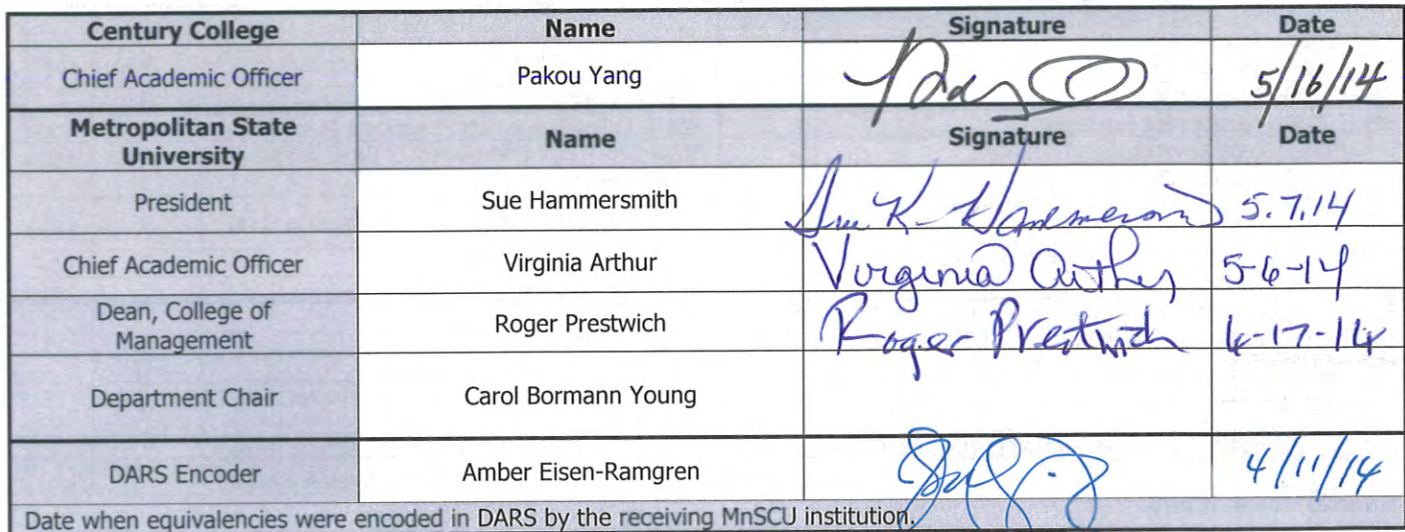 Century College Name Signature Date
Chief Academic Officer Pakou Yang 5/16/14
Metropolitan State
University Name Signature Date
President Sue Hammersmith Sue K. Hammersmith 5.7.14
Chief Academic Officer Virginia Arthur Virginia Arthur 5-6-14
Dean, College of
Management Roger Prestwich Roger Prestwich 4-17-14
Department Chair Carol Bormann Young
DARS Encoder Amber Eisen-Ramgren 4/11/14
Date when equivalencies were encoded in DARS by the receiving MnSCU institution.